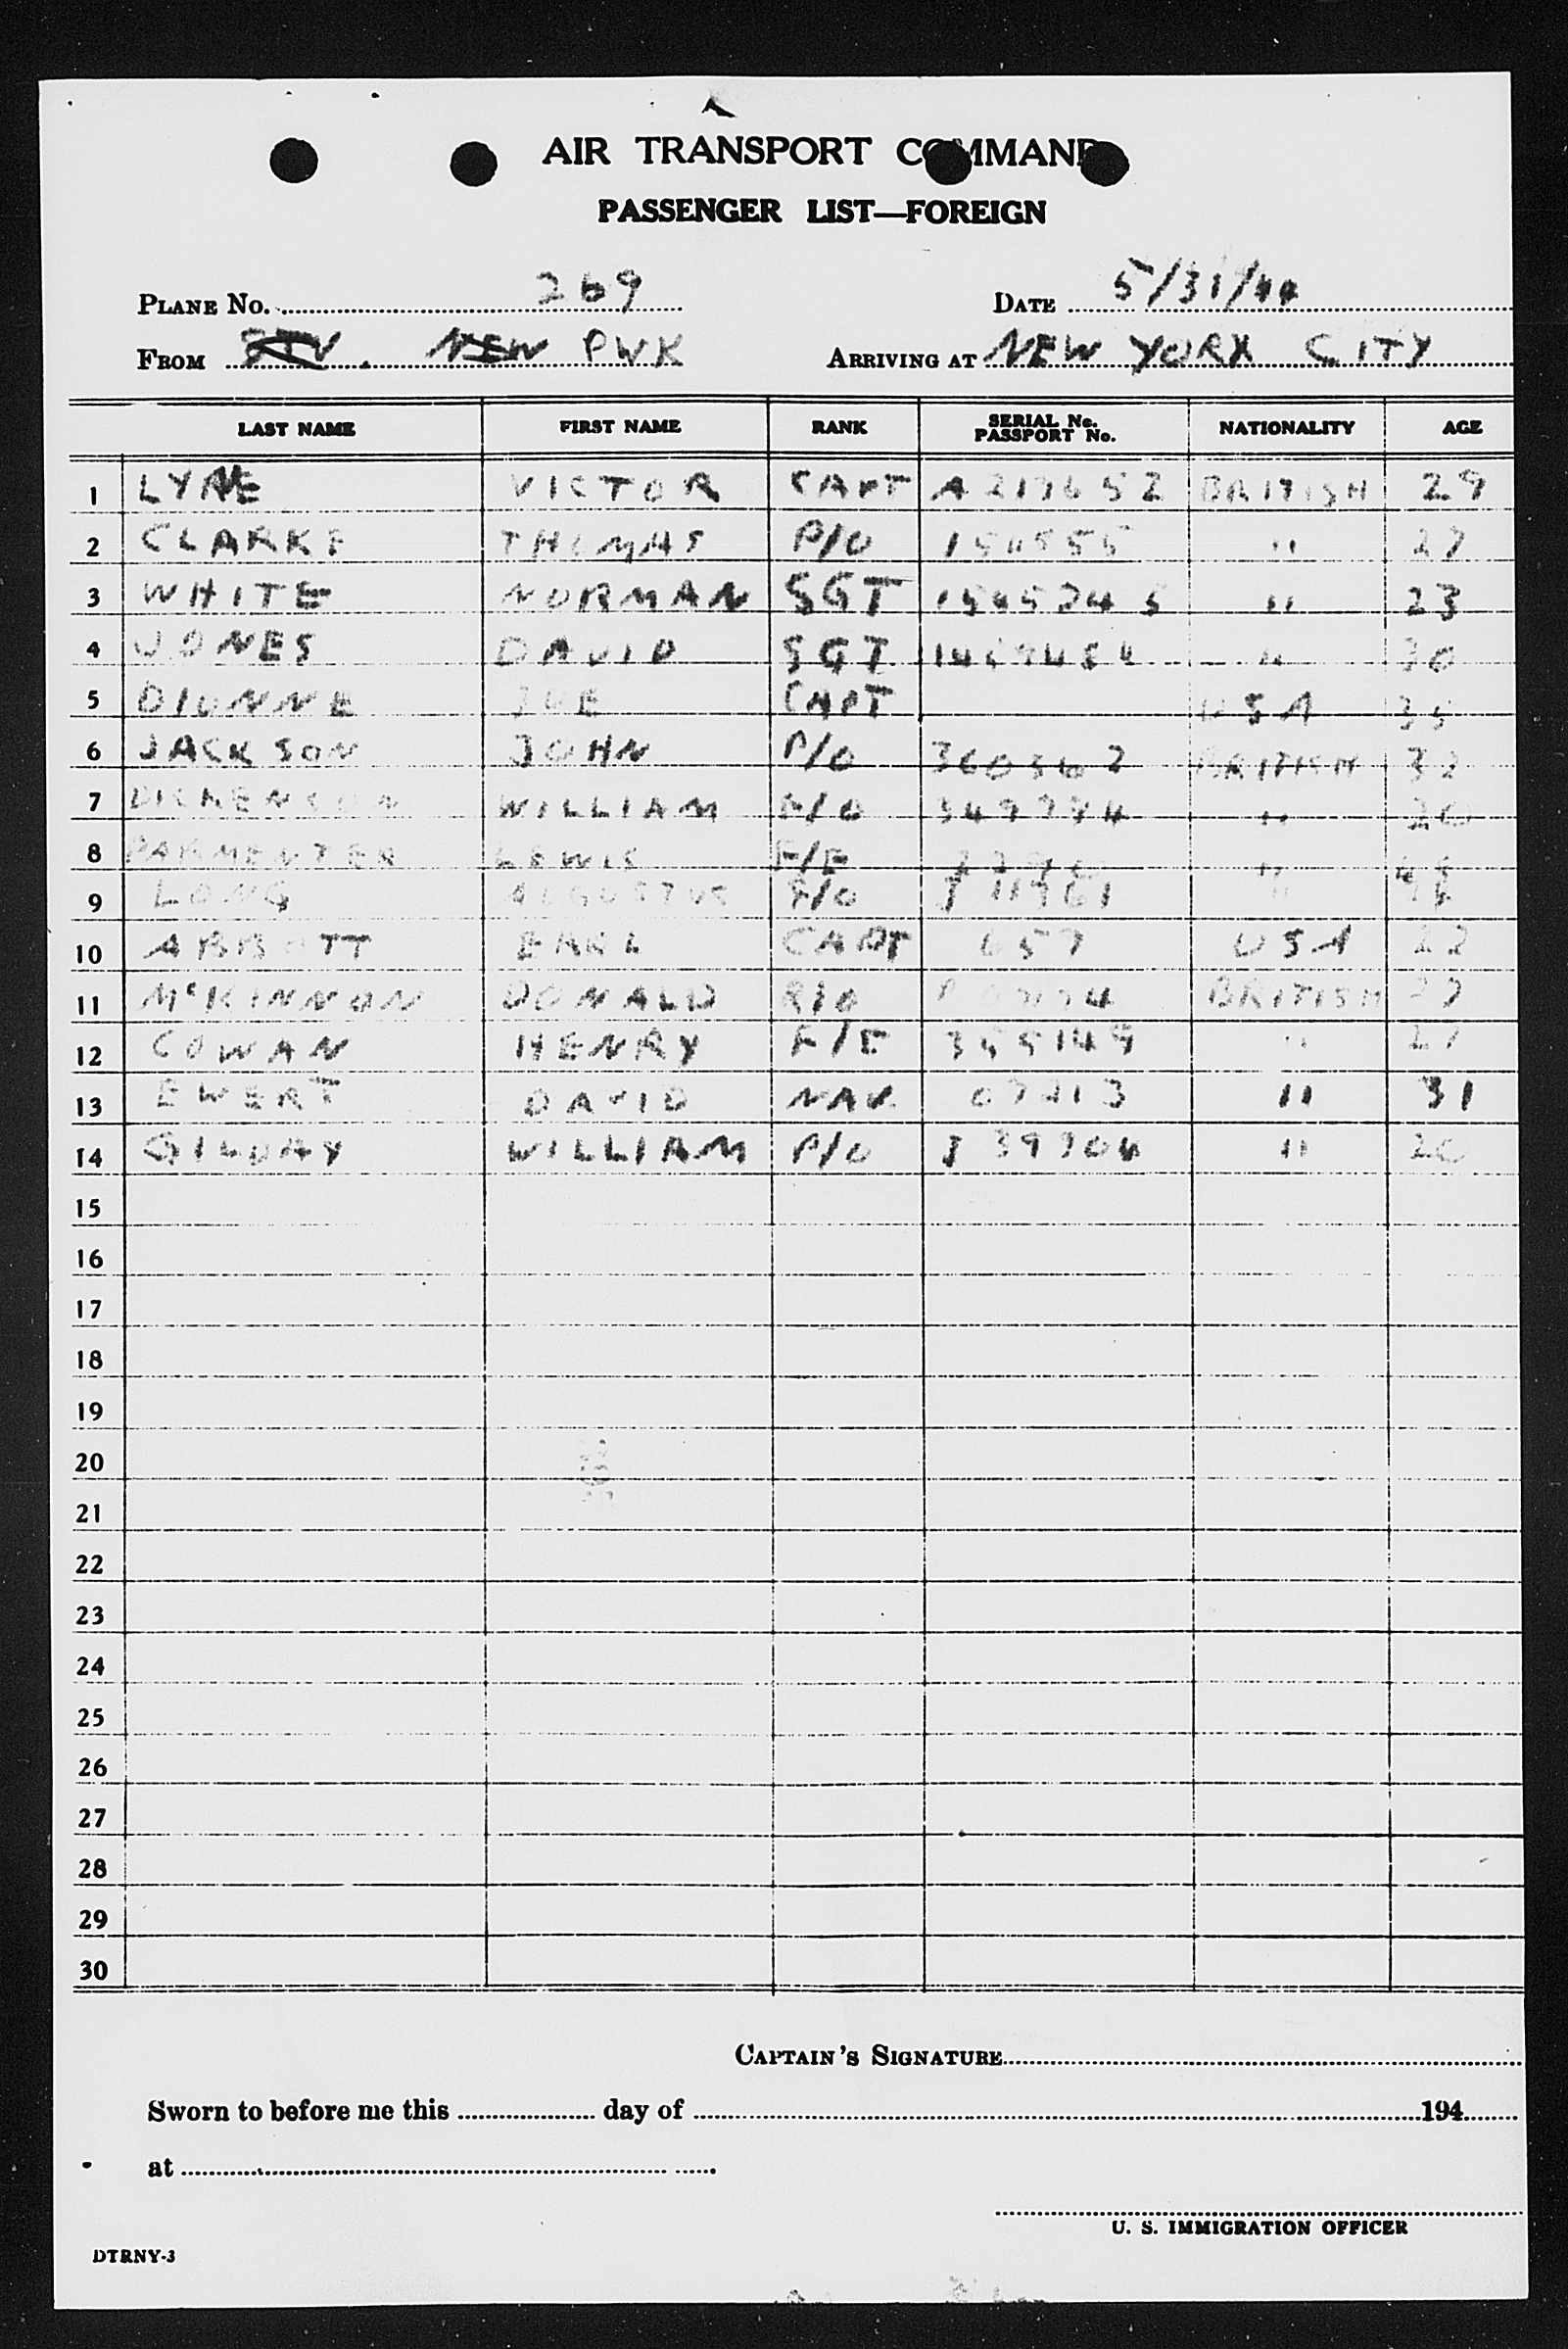 AIR TRANSPORT COMMAND
PASSENGER LIST—FOREIGN
PLANE No. 269 DATE 5/31/44
FROM PWK ARRIVING AT NEW YORK CITY
LAST NAME FIRST NAME RANK SERIAL No. PASSPORT No. NATIONALITY AGE
1 LYNE VICTOR CAPT A217652 BRITISH 29
2 CLARKE THOMAS P/O 154555 " 27
3 WHITE NORMAN SGT " 23
4 JONES DAVID SGT " 30
5 DIONNE JOE CAPT USA 35
6 JACKSON JOHN P/O 360362 BRITISH 32
7 DICKENSON WILLIAM F/O " 20
8 PARMENTER LEWIS F/E "
9 LONG AUGUSTUS J 11961 "
10 ABBOTT EARL CAPT 657 USA 22
11 McKINNON DONALD R/O BRITISH 27
12 COWAN HENRY F/E 355149 "
13 EWERT DAVID NAV. " 31
14 GILDAY WILLIAM P/O J "
15
16
17
18
19
20
21
22
23
24
25
26
27
28
29
30
CAPTAIN'S SIGNATURE
Sworn to before me this day of 194
at
U. S. IMMIGRATION OFFICER
DTRNY-3